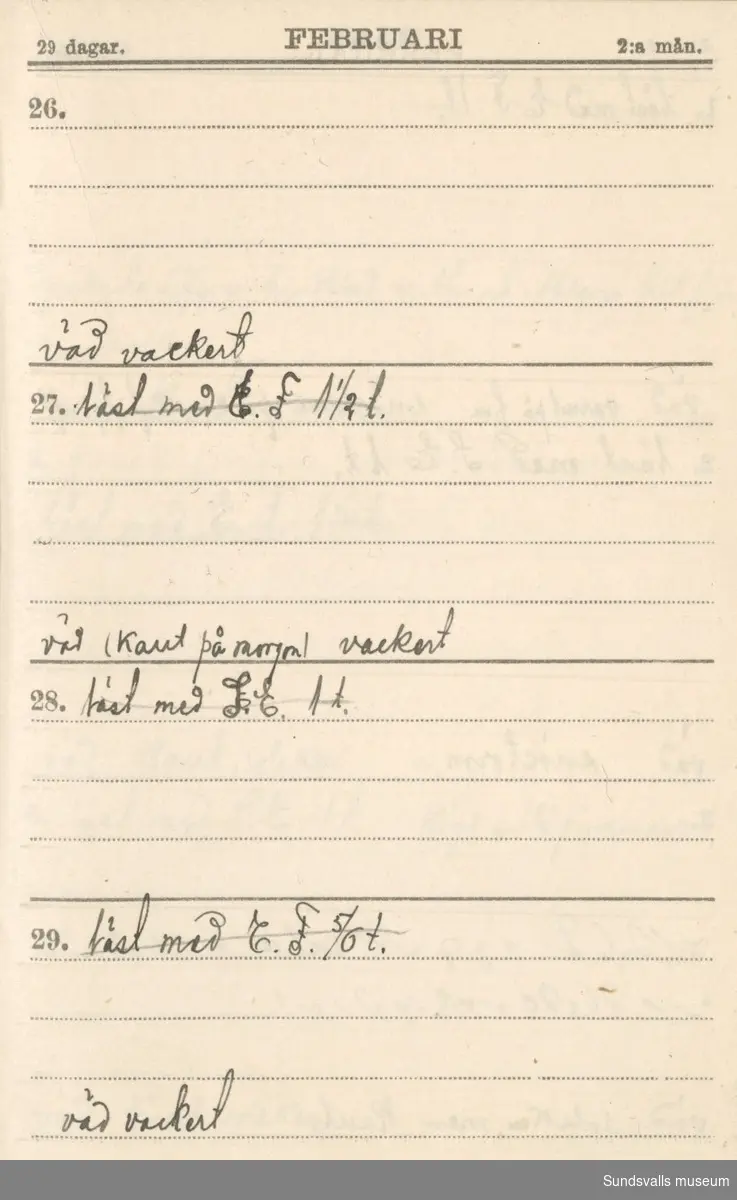 29 dagar. FEBRUARI 2:a mån.
26.
väd vackert
27. läst med E. F 1 1/2 t.
väd (kallt på morgon) vackert
28. läst med F. E. 1 t.
29. läst med E. F. 5/6 t.
väd vackert
Sundsvalls museum